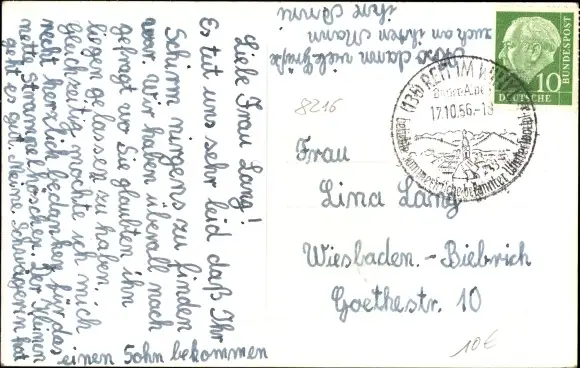 Liebe Frau Lang!
Es tut uns sehr leid daß Ihr
Schirm nirgens zu finden
war. Wir haben überall nach
gefragt wo Sie glaubten ihn
liegen gelassen zu haben.
gleichzeitig möchte ich mich
recht herzlich bedanken für das
nette Strampelhöschen. Der Kleinen
geht es gut. Meine Schwägerin hat
einen Sohn bekommen
Also dann viele Grüße
auch an ihren Mann
ihre
8216
Frau
Lina Lang
Wiesbaden.-Biebrich
Goethestr. 10
10€
(13b) REIT IM WINKL
17.10.56.-18
beliebte Sommerfrische bekannter Wintersportplatz
10
DEUTSCHE
BUNDESPOST